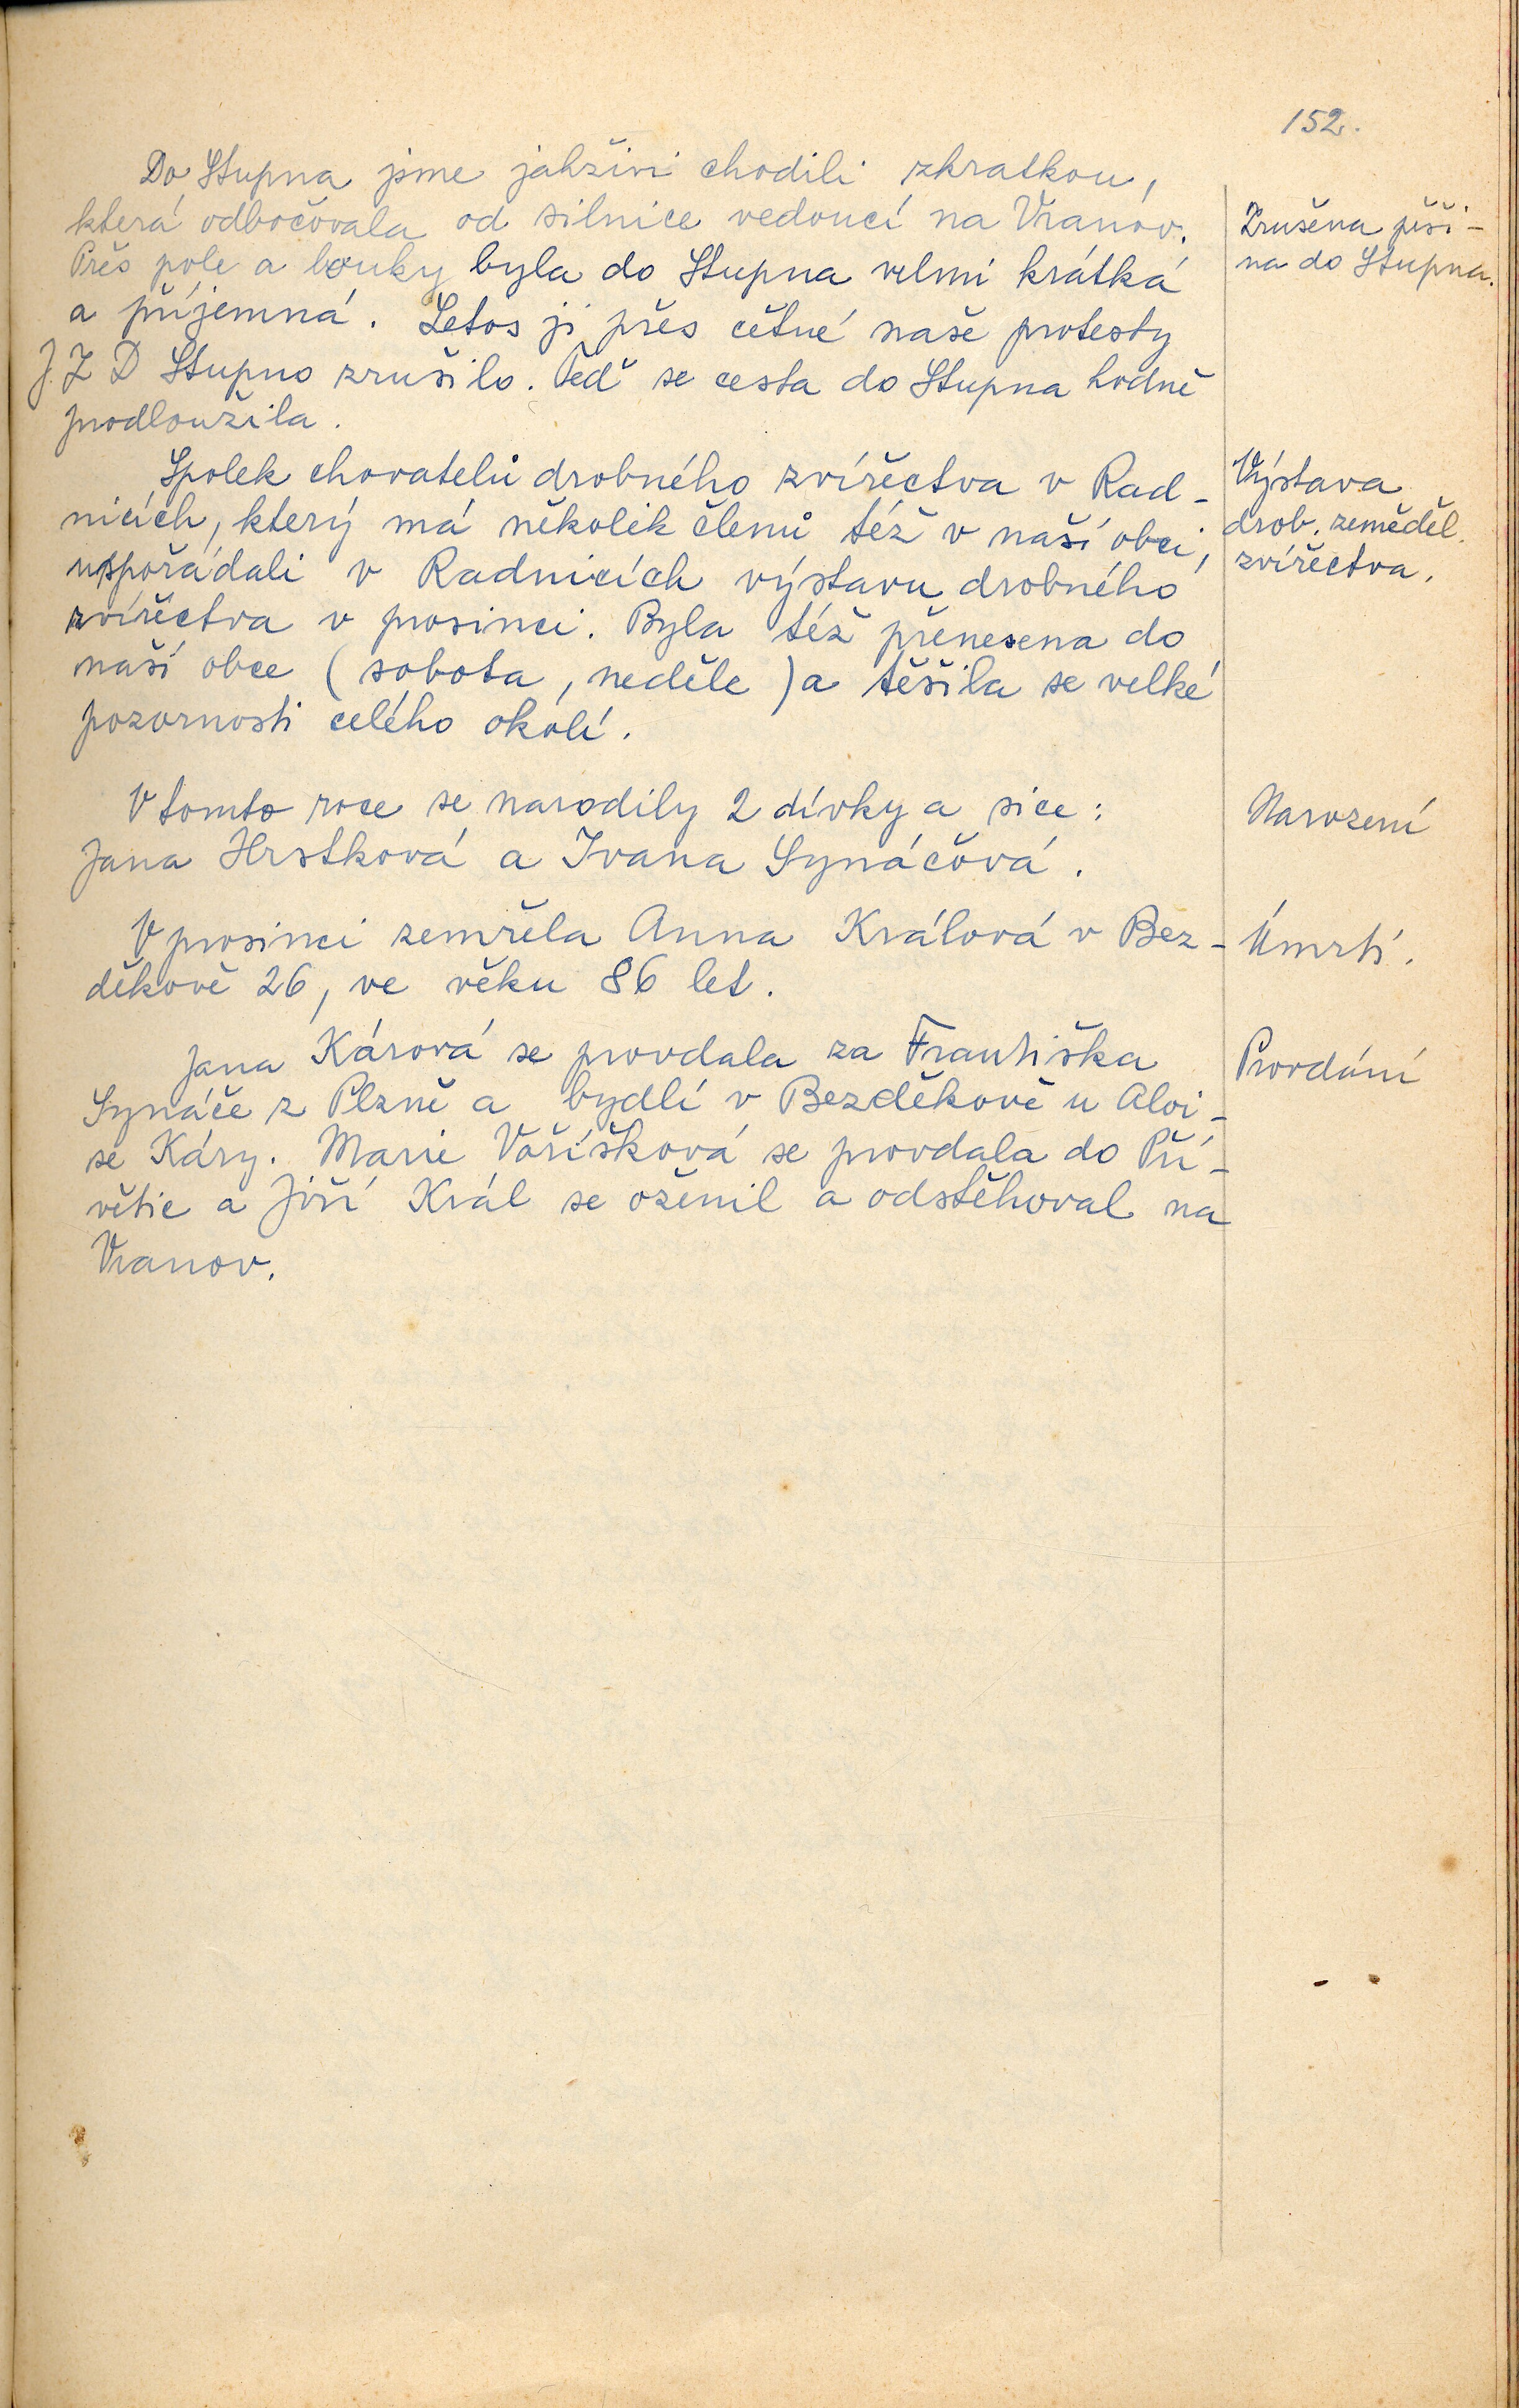 152.
Do Stupna jsme jakživi chodili zkratkou,
která odbočovala od silnice vedoucí na Vranov.
Přes pole a louky byla do Stupna velmi krátká
a příjemná. Letos ji přes četné naše protesty
J.Z D Stupno zrušilo. Teď se cesta do Stupna hodně
prodloužila.
Zrušena pěši-
na do Stupna.
Spolek chovatelů drobného zvířectva v Rad-
nicích, který má několik členů též v naší obci,
uspořádali v Radnicích výstavu drobného
zvířectva v prosinci. Byla též přenesena do
naší obce (sobota, neděle) a těšila se velké
pozornosti celého okolí.
Výstava
drob. zeměděl.
zvířectva.
V tomto roce se narodily 2 dívky a sice:
Jana Hrstková a Ivana Synáčová.
Narození
V prosinci zemřela Anna Králová v Bez-
děkově 26, ve věku 86 let.
Úmrtí.
Jana Kárová se provdala za Františka
Synáče z Plzně a bydlí v Bezděkově u Aloi-
se Káry. Marie Voříšková se provdala do Pří-
větic a Jiří Král se oženil a odstěhoval na
Vranov.
Provdání